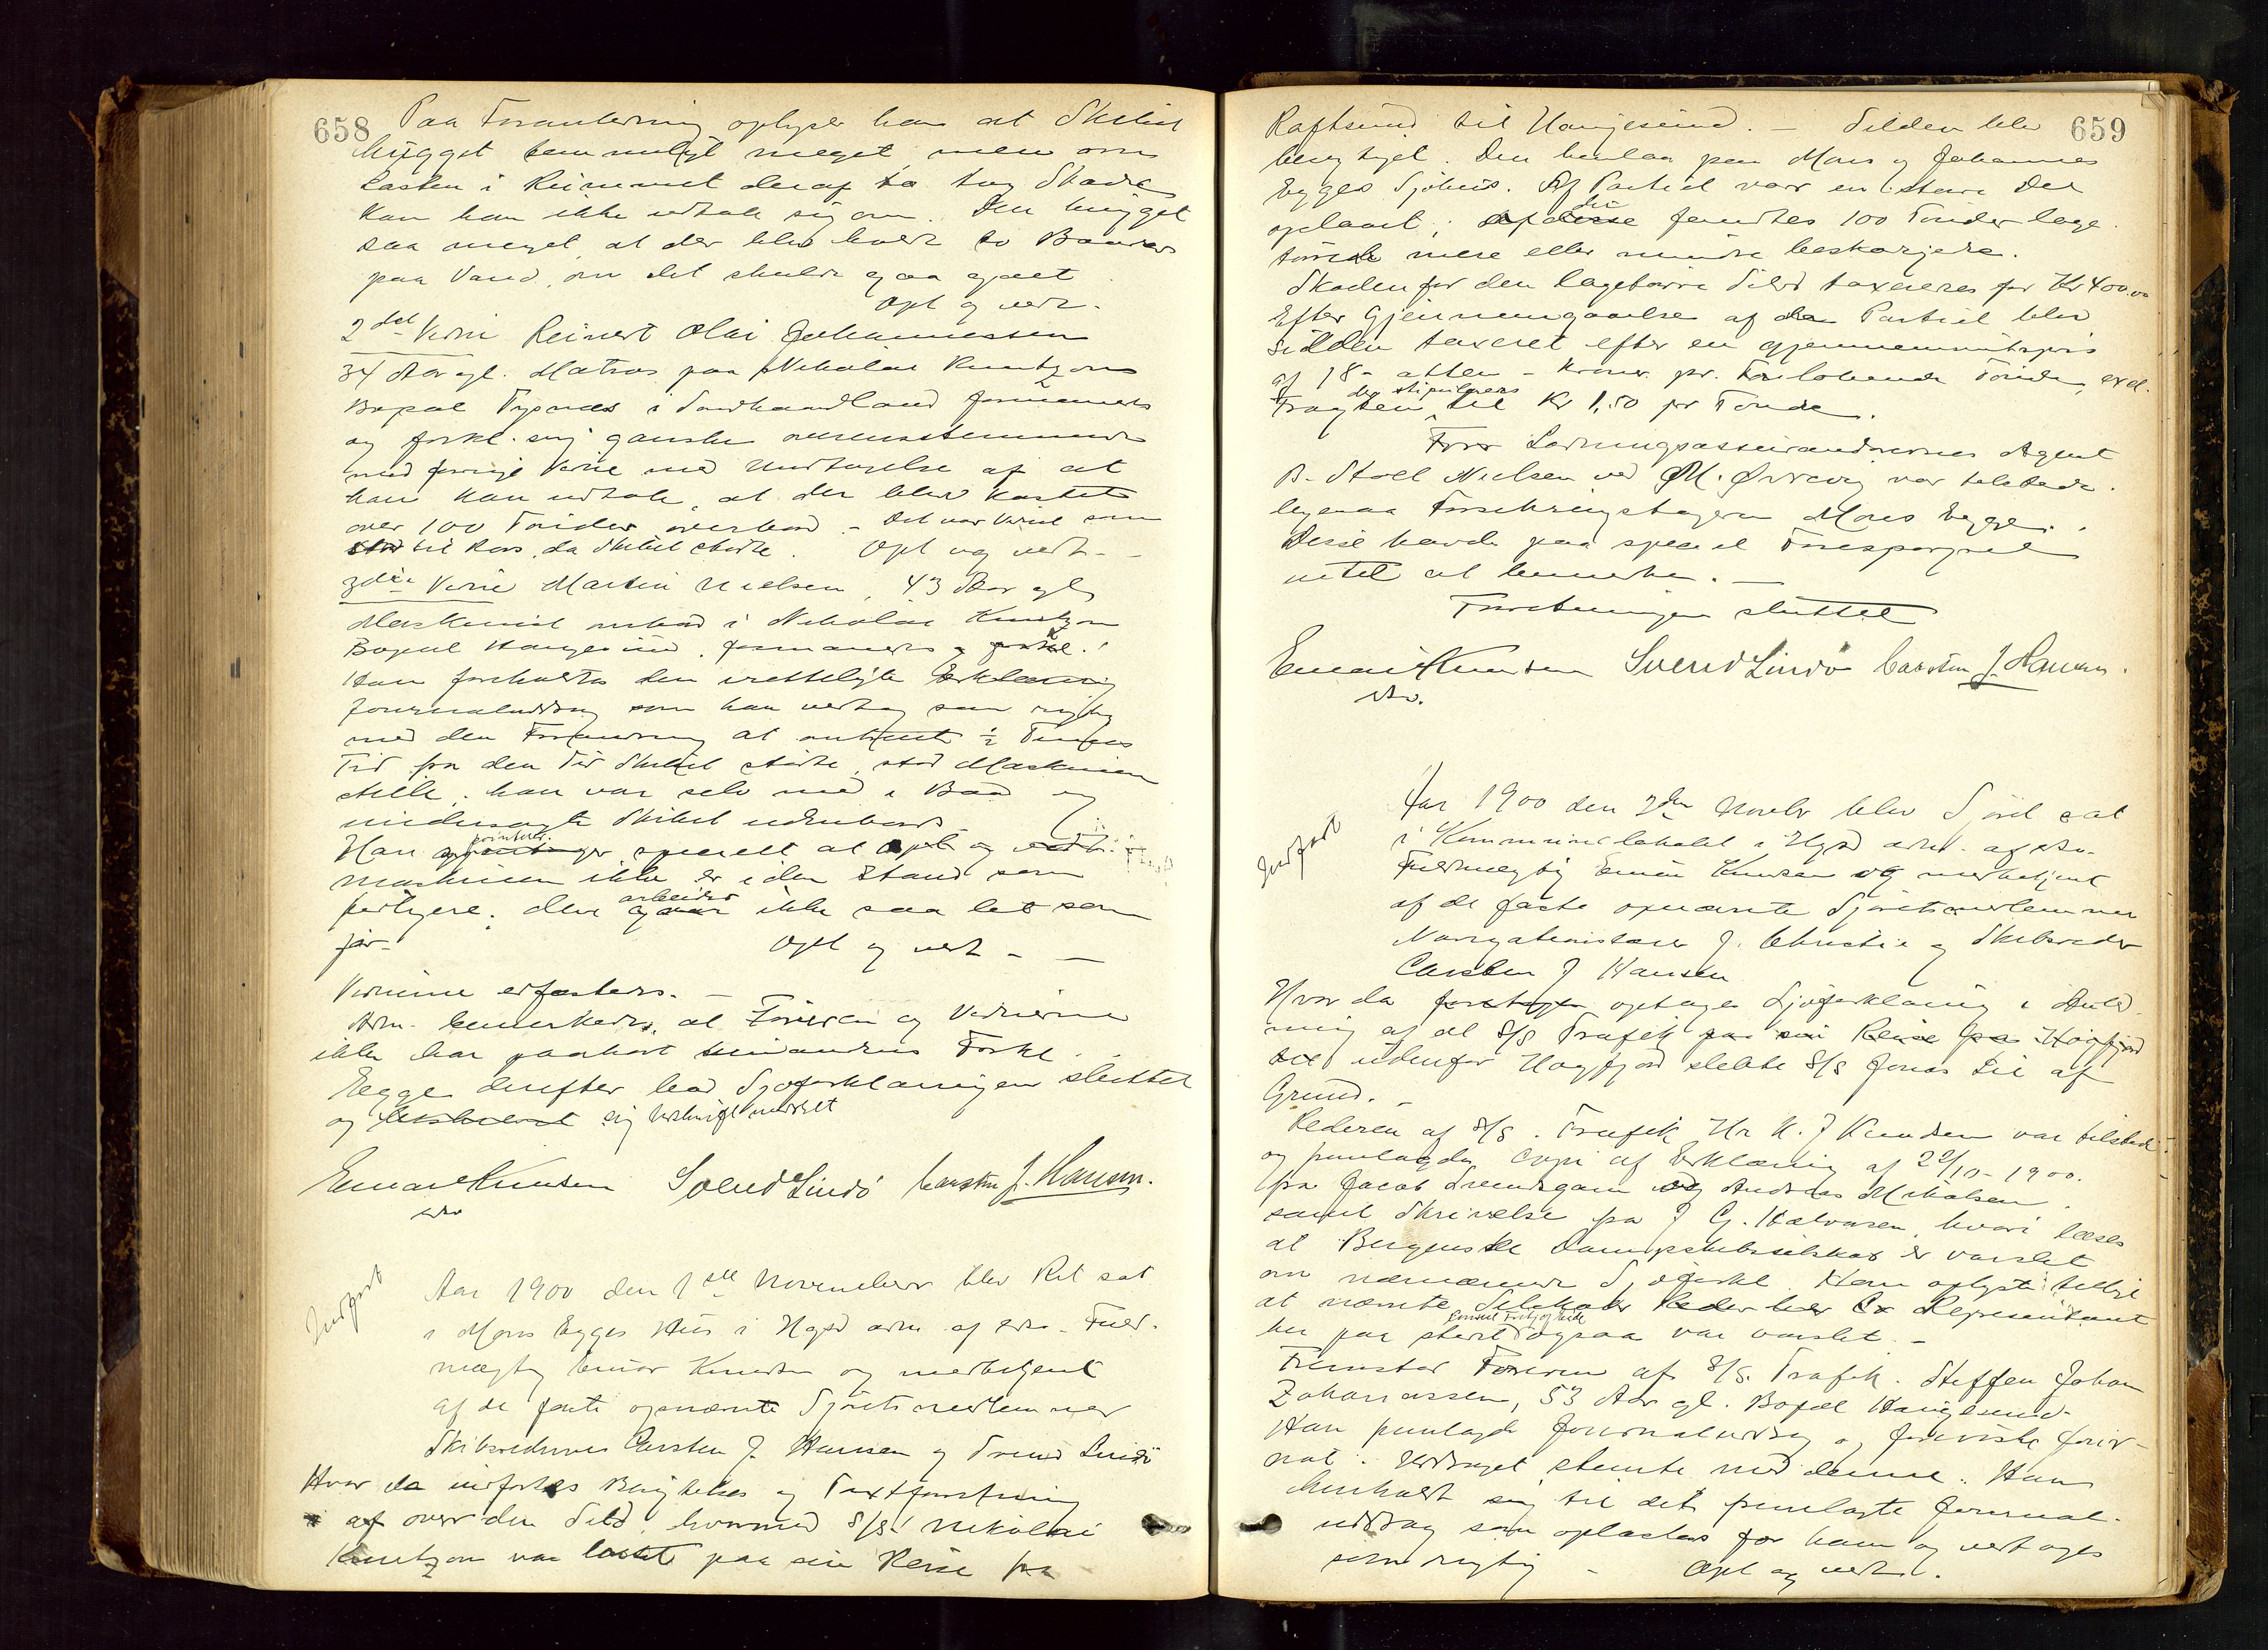 658
Paa Foranledning oplyser han at Skibet
hugget temmeligt meget, men om
Lasten i Rummet deraf to tog Skade
kan han ikke udtale sig om. Den hugget
saa meget at der blev holdt to Baader
paa Vand, om det skulde gaa galt.
Opl og vedt.
2det Vidne Reinert Olai Johannessen
34 Aar gl. Matros paa Nikolai Knutzon
Bopæl Tysnes i Søndhordland formanet
og forkl. sig ganske overensstemmende
med forrige Vidne med Undtagelse af at
han kan udtale, at der blev kastet
over 100 Tønder overbord. - Det var Vidnet som
stod til Rors, da Skibet stødte. Opl og vedt. -
3die Vidne Martin Nielsen, 43 Aar gl,
Maskinist ombord i Nikolai Knutzon
Bopæl Haugesund, formanedes og forkl.:
Han foreholdtes den irettelagte Erklæring
Journaluddrag som han vedtog som rigtig
med den Forandring at omtrent ½ Times
Tid fra den Tid Skibet stødte, stod Maskinen
stille; han var selv med i Baad og
undersøgte Skibet udenbords
Han pointerer specielt at Opl og vedt.
maskinen ikke er i den Stand som
tidligere; den arbeider ikke saa let som
før. Opl og vedt - -
Vidnerne edfæstedes. -
Adm. bemerkedes, at Føreren og Vidnerne
ikke har paahørt hinandens Forkl.
Begge derefter bad Sjøforklaringen sluttet
og sig bekræftet meddelt
Einar Knudsen Svend Lindø Carsten J. Hansen.
adv
Indført
Aar 1900 den 1ste November blev Ret sat
i Mons Egges Hus i Hgsd adm af edv. Fuld-
mægtig Einar Knudsen og medbetjent
af de faste opnævnte Sjøretsmedlemmer
Skibsrederne Carsten J. Hansen og Svend Lindø
Hvor da indførtes Besigtelses og Taxtforretning
af over den Sild, hvormed S/S. Nikolai
Knutzon var lastet paa sin Reise fra
659
Raftsund til Haugesund. - Silden blev
besigtiget. Den henlaa paa Mons og Johannes
Egges Sjøhus. Af Partiet var en større Del
oplaaet; deri fandtes 100 Tønder lage
tørre mere eller mindre beskadigede.
Skaden for den lagetørre Sild taxeres for Kr 400.00
Efter Gjennemgaaelse af Partiet blev
Silden taxeret efter en gjennemsnitspris
af 18 - atten - Kroner pr. Foreløbende Tønde, excl.
Fragten der stipuleres til Kr 1,50 pr Tønde.
For Ladningsassurandørernes Agent
B. Stolt Nielsen ved M. Ørrevig var tilstede.
ligesaa Forsikringstageren Mons Egge.
Disse havde paa speciel Forespørgsel
intet at bemerke. -
Forretningen sluttet
Einar Knudsen Svend Lindø Carsten J. Hansen.
adv.
Indført
Aar 1900 den 2den Novbr blev Sjøret sat
i Kommunelokalet i Hgsd adm. af edv.
Fuldmægtig Einar Knudsen og medbetjent
af de faste opnævnte Sjøretsmedlemmer
Navigationslærer J. Christie og Skibsreder
Carsten J Hansen
Hvor da optages Sjøforklaring i Anled-
ning af at S/S Trafik paa sin Reise fra Høgfjord
udenfor Høgfjord slæbte S/S Jonas Lie af
Grund. -
Rederen af S/S. Trafik Hr K. J Knudsen var tilstede
og fremlagde Copi af Erklæring af 22/10 - 1900.
fra Jacob og Andreas Mikalsen,
samt Skrivelse fra J G. Halvorsen, hvori læses
at Bergenske Dampskibsselskab er varslet
om nærværende Sjøforkl. Han oplyste tillige
at nævnte Selskabs Representant
her paa stedet ogsaa var varslet. -
Fremstod Føreren af S/S. Trafik. Steffen Johan
Zakariassen, 53 Aar gl. Bopæl Haugesund.
Han fremlagde Journaludrag og foreviste Jour-
nal. Uddraget stemte med denne. Han
henholdt sig til det fremlagte Journal-
uddrag som oplæstes for ham og vedtoges
som rigtig - Opl og vedt.